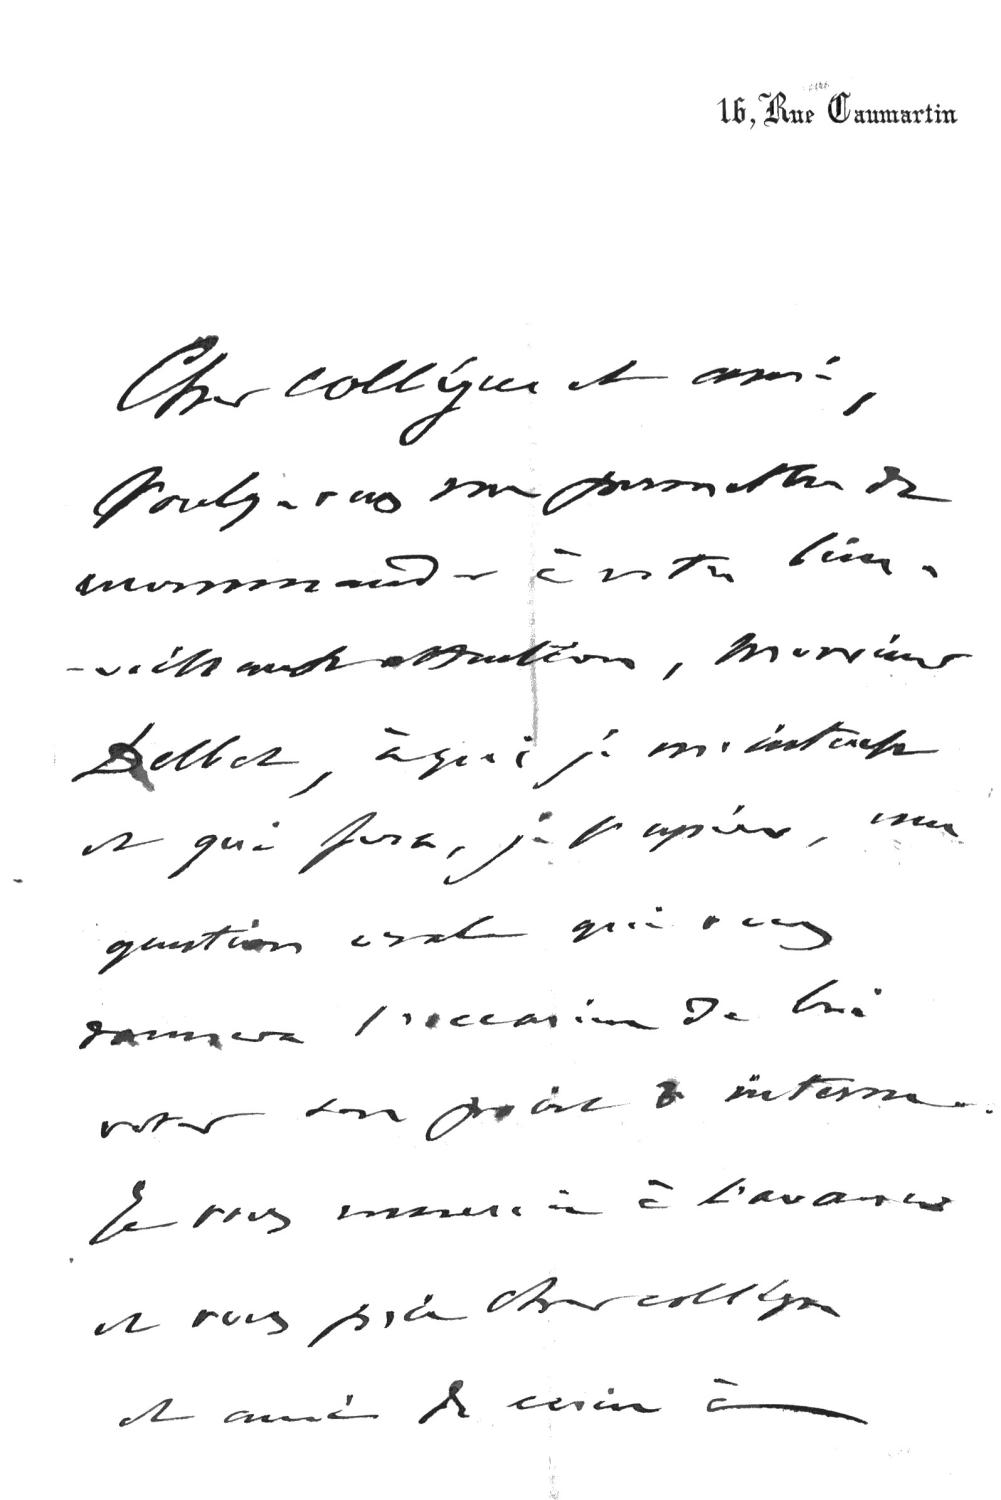 16, Rue Caumartin
Cher collègue et ami,
Voulez-vous me permettre de
recommander à votre bien-
-veillante attention, Monsieur
Delbet, à qui je m'intéresse
et qui fera, je l'espère, une
question orale qui vous
donnera l'occasion de lui
voter son point d'interne.
Je vous remercie à l'avance
et vous prie cher collègue
et ami de croire à